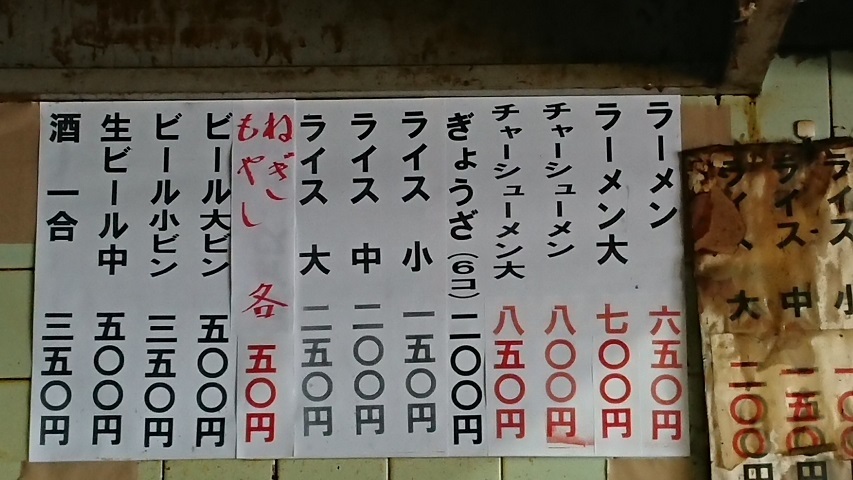 ラーメン 六五〇円
ラーメン大 七〇〇円
チャーシューメン 八〇〇円
チャーシューメン大 八五〇円
ぎょうざ(6コ) 二〇〇円
ライス 小 一五〇円
ライス 中 二〇〇円
ライス 大 二五〇円
ねぎ
もやし 各 五〇円
ビール大ビン 五〇〇円
ビール小ビン 三五〇円
生ビール中 五〇〇円
酒 一合 三五〇円
ライス 小
ライス 中 一五〇円
ライス 大 二〇〇円